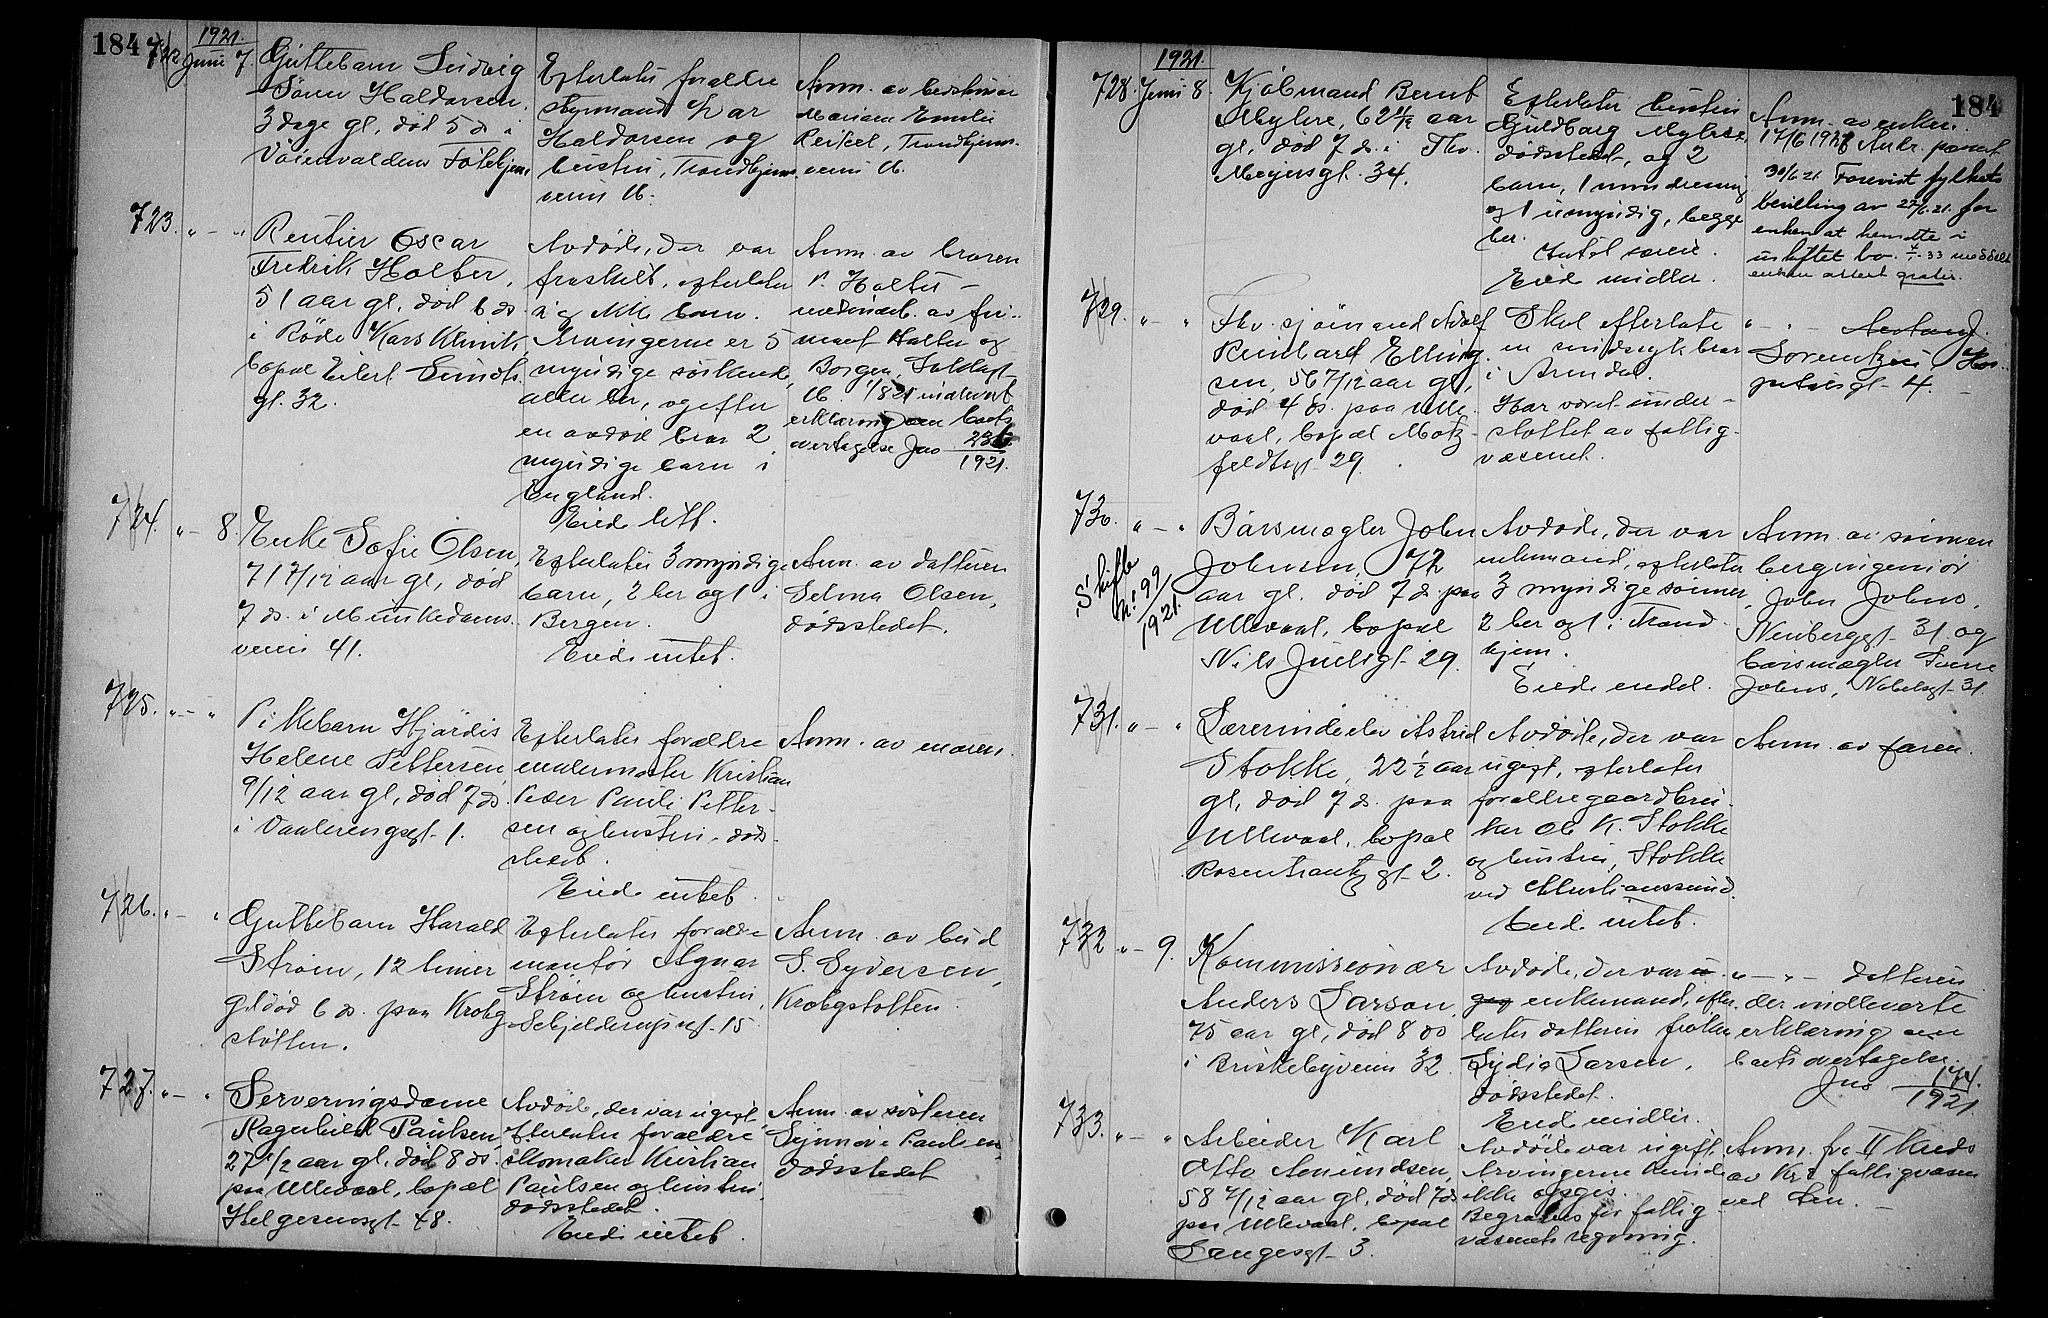 184
1921.
722 Juni 7.
Guttebarn Ludvig
Sören Haldorsen,
3 dage gl, död 5 ds i
Efterlater forældre
styrmand
Haldorsen og
hustru, Trondhjems-
veien 16.
Anm. av
Mariane Emilie
Trondhjems-
veien 16.
723. " - "
Rentier Oscar
Fredrik Holter,
51 aar gl, död 6 ds.
i Röde Kors Klinik,
bopæl Eilert Sundts
gt. 32.
Avdöde, der var
fraskilt, efterlater
ikke barn.
Arvingerne er 5
myndige söskende,
alle her, og efter
en avdöd bror 2
myndige barn i
England.
Eied litt.
Anm. av broren
P. Holter -
medindeh. av fir-
maet Holter og
Borgen,
16. 1/8 21 indlevert
erklæring om boets
overtagelse Jno 236
1921.
724. " - 8.
Enke Sofie Olsen,
71 7/12 aar gl, död
7 ds. i Munkedams-
veien 41.
Efterlater 3 myndige
barn, 2 her og 1 i
Bergen.
Eied intet.
Anm. av datteren
Selma Olsen,
dödsstedet.
725. " - "
Pikebarn Hjördis
Helene Pettersen
9/12 aar gl, död 7 ds.
i Vaalerenggt. 1.
Efterlater forældre
malermester Kristian
Peder Pauli Petter-
sen og hustru, döds-
stedet.
Eied intet.
Anm. av moren.
726. " - "
Guttebarn Harald
Ström, 12 timer
gl. död 6 ds. paa Krohg-
stötten.
Efterlater forældre
montör Agnar
Ström og hustru,
Schjelderupsgt. 15
Anm. av bud
S. Syversen,
Krohgstötten.
727. " - "
Serveringsdame
Ragnhild Paulsen,
27 1/2 aar gl, död 8 ds.
paa Ullevaal, bopæl
Helgesensgt. 48.
Avdöde, der var ugift,
Efterlater forældre
skomaker Kristian
Paulsen og hustru,
dödsstedet.
Eied intet.
Anm. av sösteren
Signora Paulsen,
dödsstedet
184
1921.
728. Juni 8.
Kjöbmand Bernt
Myhre, 62 11/12 aar
gl, död 7 ds. i Thv.
Meyersgt. 34.
Efterlater hustru
Guldborg Myhre,
dödsstedet, og 2
barn, 1 mindreaarig
og 1 umyndig, begge
her.
Intet særeie.
Eied midler.
Anm. av enken.
17/6 1921
30/6 21. Forevist fylkets
bevilling av 27/6 21. for
enken at hensitte i
uskiftet bo.
enken attest gratis.
729. " - "
Fhv. sjömand Adolf
Reinhard Elling-
sen, 56 7/12 aar gl,
död 4 ds. paa Ulle-
vaal, bopæl Motz-
feldtsgt. 29.
Skal efterlate
en sindssyk bror
i Arendal.
Har været under-
stöttet av fattig-
væsenet.
" - " -
Lorentzen, Hos-
pitalsgt. 4.
730. " - "
Skifte
№ 99
1921.
Börsmægler John
Johnsen, 72
aar gl. död 7 ds. paa
Ullevaal, bopæl
Nils Juelsgt. 29.
Avdöde, der var
enkemand, efterlater
3 myndige sönner,
2 her og 1 i Trond-
hjem.
Eied endel.
Anm. av sönnen
bergingeniör
John Johns,
Neubergsgt. 31 og
börsmægler
Johns, Nobelsgt. 31
731. " - "
Lærerindeelev Astrid
Stokke, 22 1/2 aar
gl, död 7 ds. paa
Ullevaal, bopæl
Rosenkrantz gt. 2.
Avdöde, der var
ugift, efterlater
forældre gaardbru-
ker Ole K. Stokke
og hustru, Stokke
ved Kristianssund.
Eied intet.
Anm. av faren.
732 " - 9.
Kommissionær
Anders Larson,
75 aar gl, död 8 ds
i Briskebyveien 32.
Avdöde, der var u-
gift enkemand, efter-
later datteren fröken
Lydia Larsen,
dödsstedet.
Eied midler.
" - " - datteren
der indleverte
erklæring om
boets overtagelse.
Jno 174.
1921
733. " - "
Arbeider Karl
Otto Amundsen,
58 7/12 aar gl, död 7 ds
paa Ullevaal, bopæl
Langesgt. 3.
Avdöde var ugift.
Arvingerne kunde
ikke opgis.
Begraves for fattig-
væsenets regning.
Anm. fra II Kreds
av Kra fattigvæsen
ved